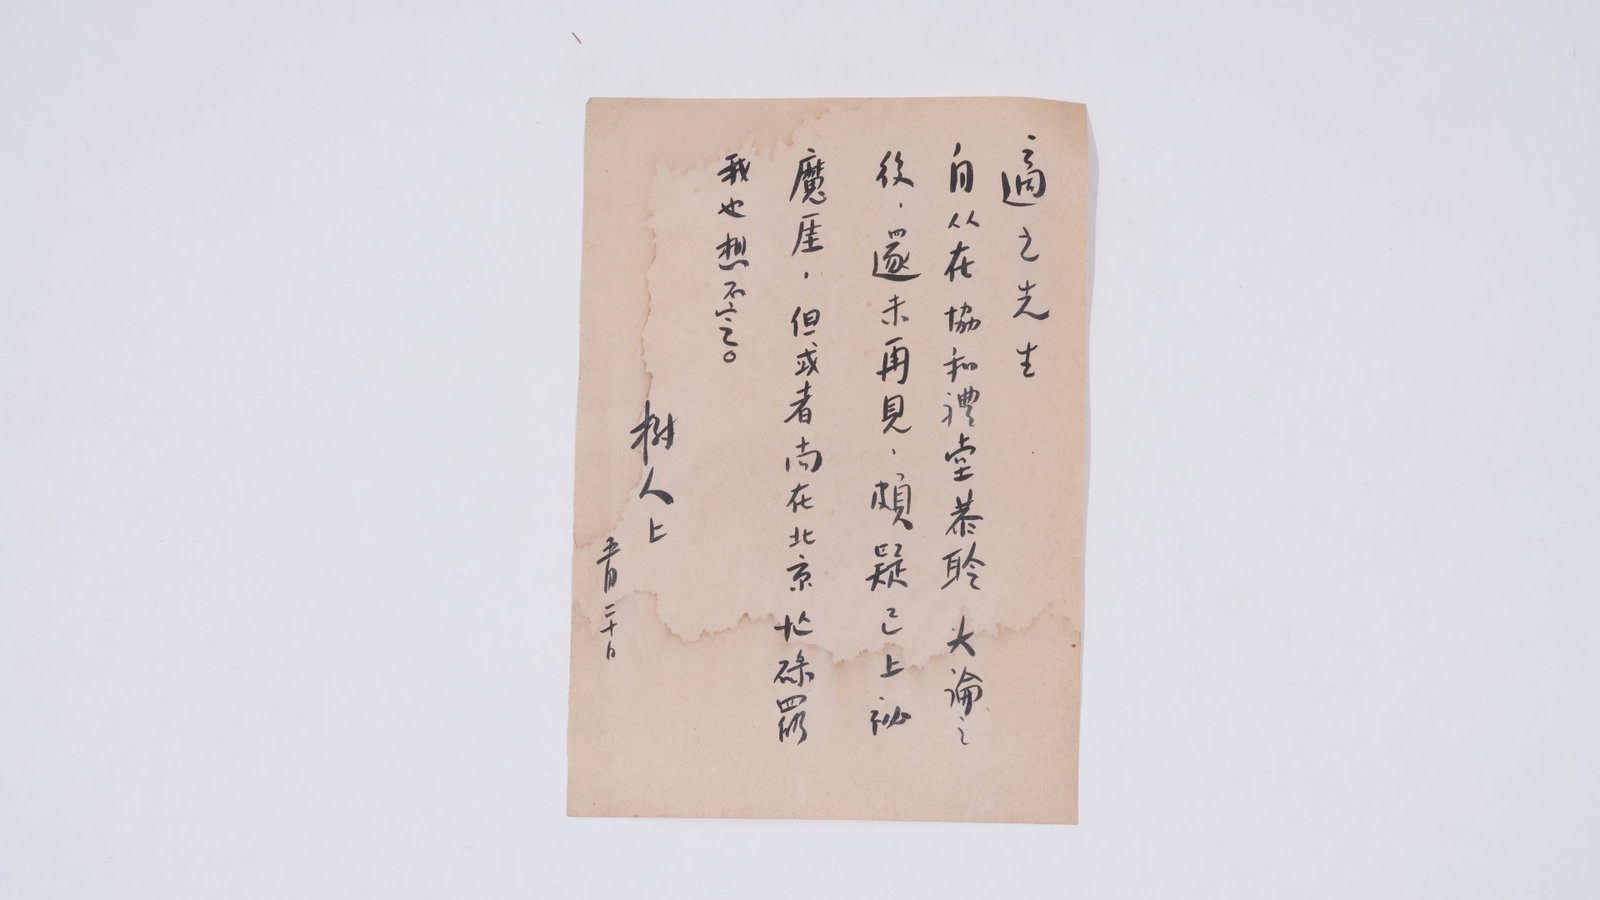 適之先生
自从在協和禮堂恭聆 大論之
後，還未再見，頗疑已上祕
魔崖，但或者尚在北京忙碌罷
我也想不定。
樹人上
五月二十日